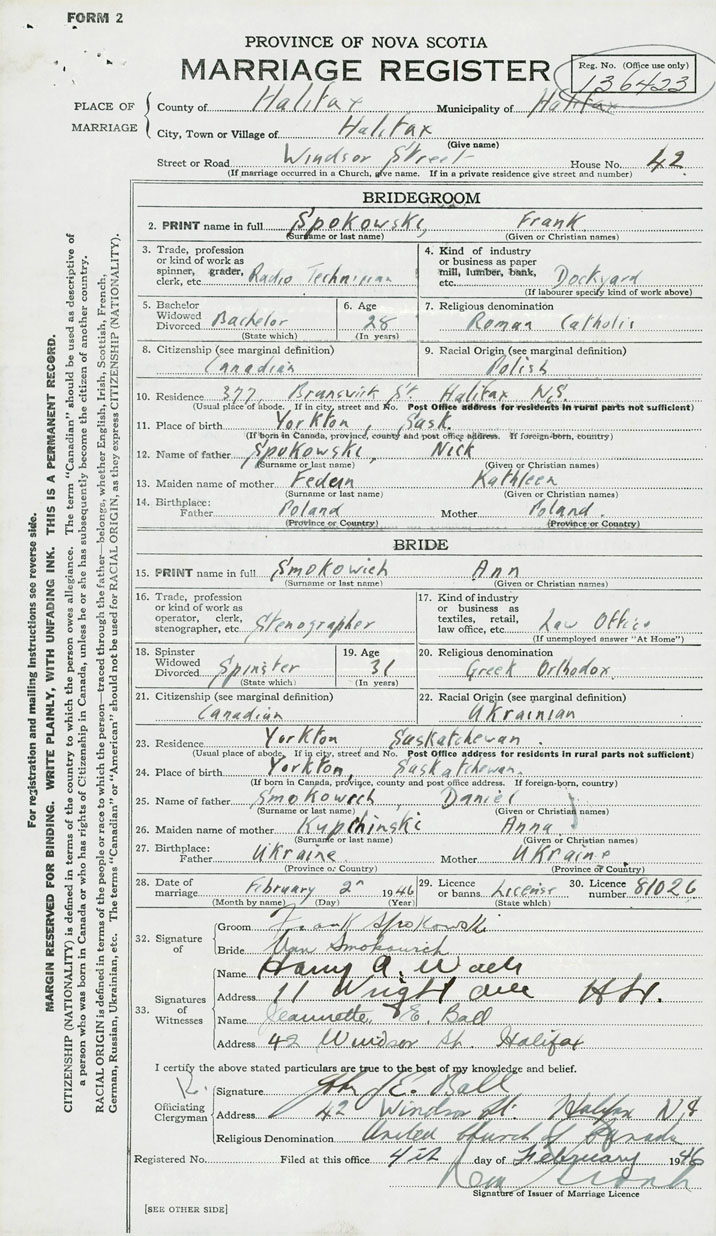 FORM 2
PROVINCE OF NOVA SCOTIA
MARRIAGE REGISTER
Reg. No. (Office use only)
136423
PLACE OF MARRIAGE
County of Halifax Municipality of Halifax
City, Town or Village of Halifax
(Give name)
Street or Road Windsor Street House No. 42
(If marriage occurred in a Church, give name. If in a private residence give street and number)
BRIDEGROOM
2. PRINT name in full Spokowski, Frank
(Surname or last name) (Given or Christian names)
3. Trade, profession or kind of work as spinner, grader, clerk, etc. Radio Technician
4. Kind of industry or business as paper mill, lumber, bank, etc. Dockyard
(If labourer specify kind of work above)
5. Bachelor Widowed Divorced Bachelor
(State which)
6. Age 28
(In years)
7. Religious denomination
Roman Catholic
8. Citizenship (see marginal definition)
Canadian
9. Racial Origin (see marginal definition)
Polish
10. Residence 377 Brunswick St Halifax N.S.
(Usual place of abode. If in city, street and No. Post Office address for residents in rural parts not sufficient)
11. Place of birth Yorkton, Sask.
(If born in Canada, province, county and post office address. If foreign-born, country)
12. Name of father Spokowski, Nick
(Surname or last name) (Given or Christian names)
13. Maiden name of mother Kathleen
(Surname or last name) (Given or Christian names)
14. Birthplace: Father Poland Mother Poland.
(Province or Country) (Province or Country)
BRIDE
15. PRINT name in full Smokowich Ann
(Surname or last name) (Given or Christian names)
16. Trade, profession or kind of work as operator, clerk, stenographer, etc. Stenographer
17. Kind of industry or business as textiles, retail, law office, etc. Law Office
(If unemployed answer "At Home")
18. Spinster Widowed Divorced Spinster
(State which)
19. Age 31
(In years)
20. Religious denomination
Greek Orthodox
21. Citizenship (see marginal definition)
Canadian
22. Racial Origin (see marginal definition)
Ukrainian
23. Residence Yorkton Saskatchewan.
(Usual place of abode. If in city, street and No. Post Office address for residents in rural parts not sufficient)
24. Place of birth Yorkton, Saskatchewan.
(If born in Canada, province, county and post office address. If foreign-born, country)
25. Name of father Smokowich, Daniel
(Surname or last name) (Given or Christian names)
26. Maiden name of mother Kupchinski Anna
(Surname or last name) (Given or Christian names)
27. Birthplace: Father Ukraine Mother Ukraine
(Province or Country) (Province or Country)
28. Date of marriage February 2 1946
(Month by name) (Day) (Year)
29. Licence or banns License
(State which)
30. Licence number 81026
32. Signature of
Groom Frank Spokowski
Bride Ann Smokowich
33. Signatures of Witnesses
Name Harry A.
Address 11 Wright Ave
Name Jeannette E. Ball
Address 42 Windsor St. Halifax
I certify the above stated particulars are true to the best of my knowledge and belief.
Officiating Clergyman
Signature E. Ball
Address 42 Windsor St. Halifax N S
Religious Denomination United Church of Canada
Registered No. Filed at this office 4th day of February 1946
Signature of Issuer of Marriage Licence
[SEE OTHER SIDE]
For registration and mailing instructions see reverse side.
MARGIN RESERVED FOR BINDING. WRITE PLAINLY, WITH UNFADING INK. THIS IS A PERMANENT RECORD.
CITIZENSHIP (NATIONALITY) is defined in terms of the country to which the person owes allegiance. The term "Canadian" should be used as descriptive of
a person who was born in Canada or who has rights of Citizenship in Canada, unless he or she has subsequently become the citizen of another country.
RACIAL ORIGIN is defined in terms of the people or race to which the person—traced through the father—belongs, whether English, Irish, Scottish, French,
German, Russian, Ukrainian, etc. The terms "Canadian" or "American" should not be used for RACIAL ORIGIN, as they express CITIZENSHIP (NATIONALITY).